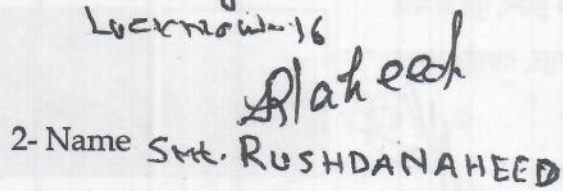 Lucknow-16
RNaheed
2- Name Smt. RUSHDANAHEED